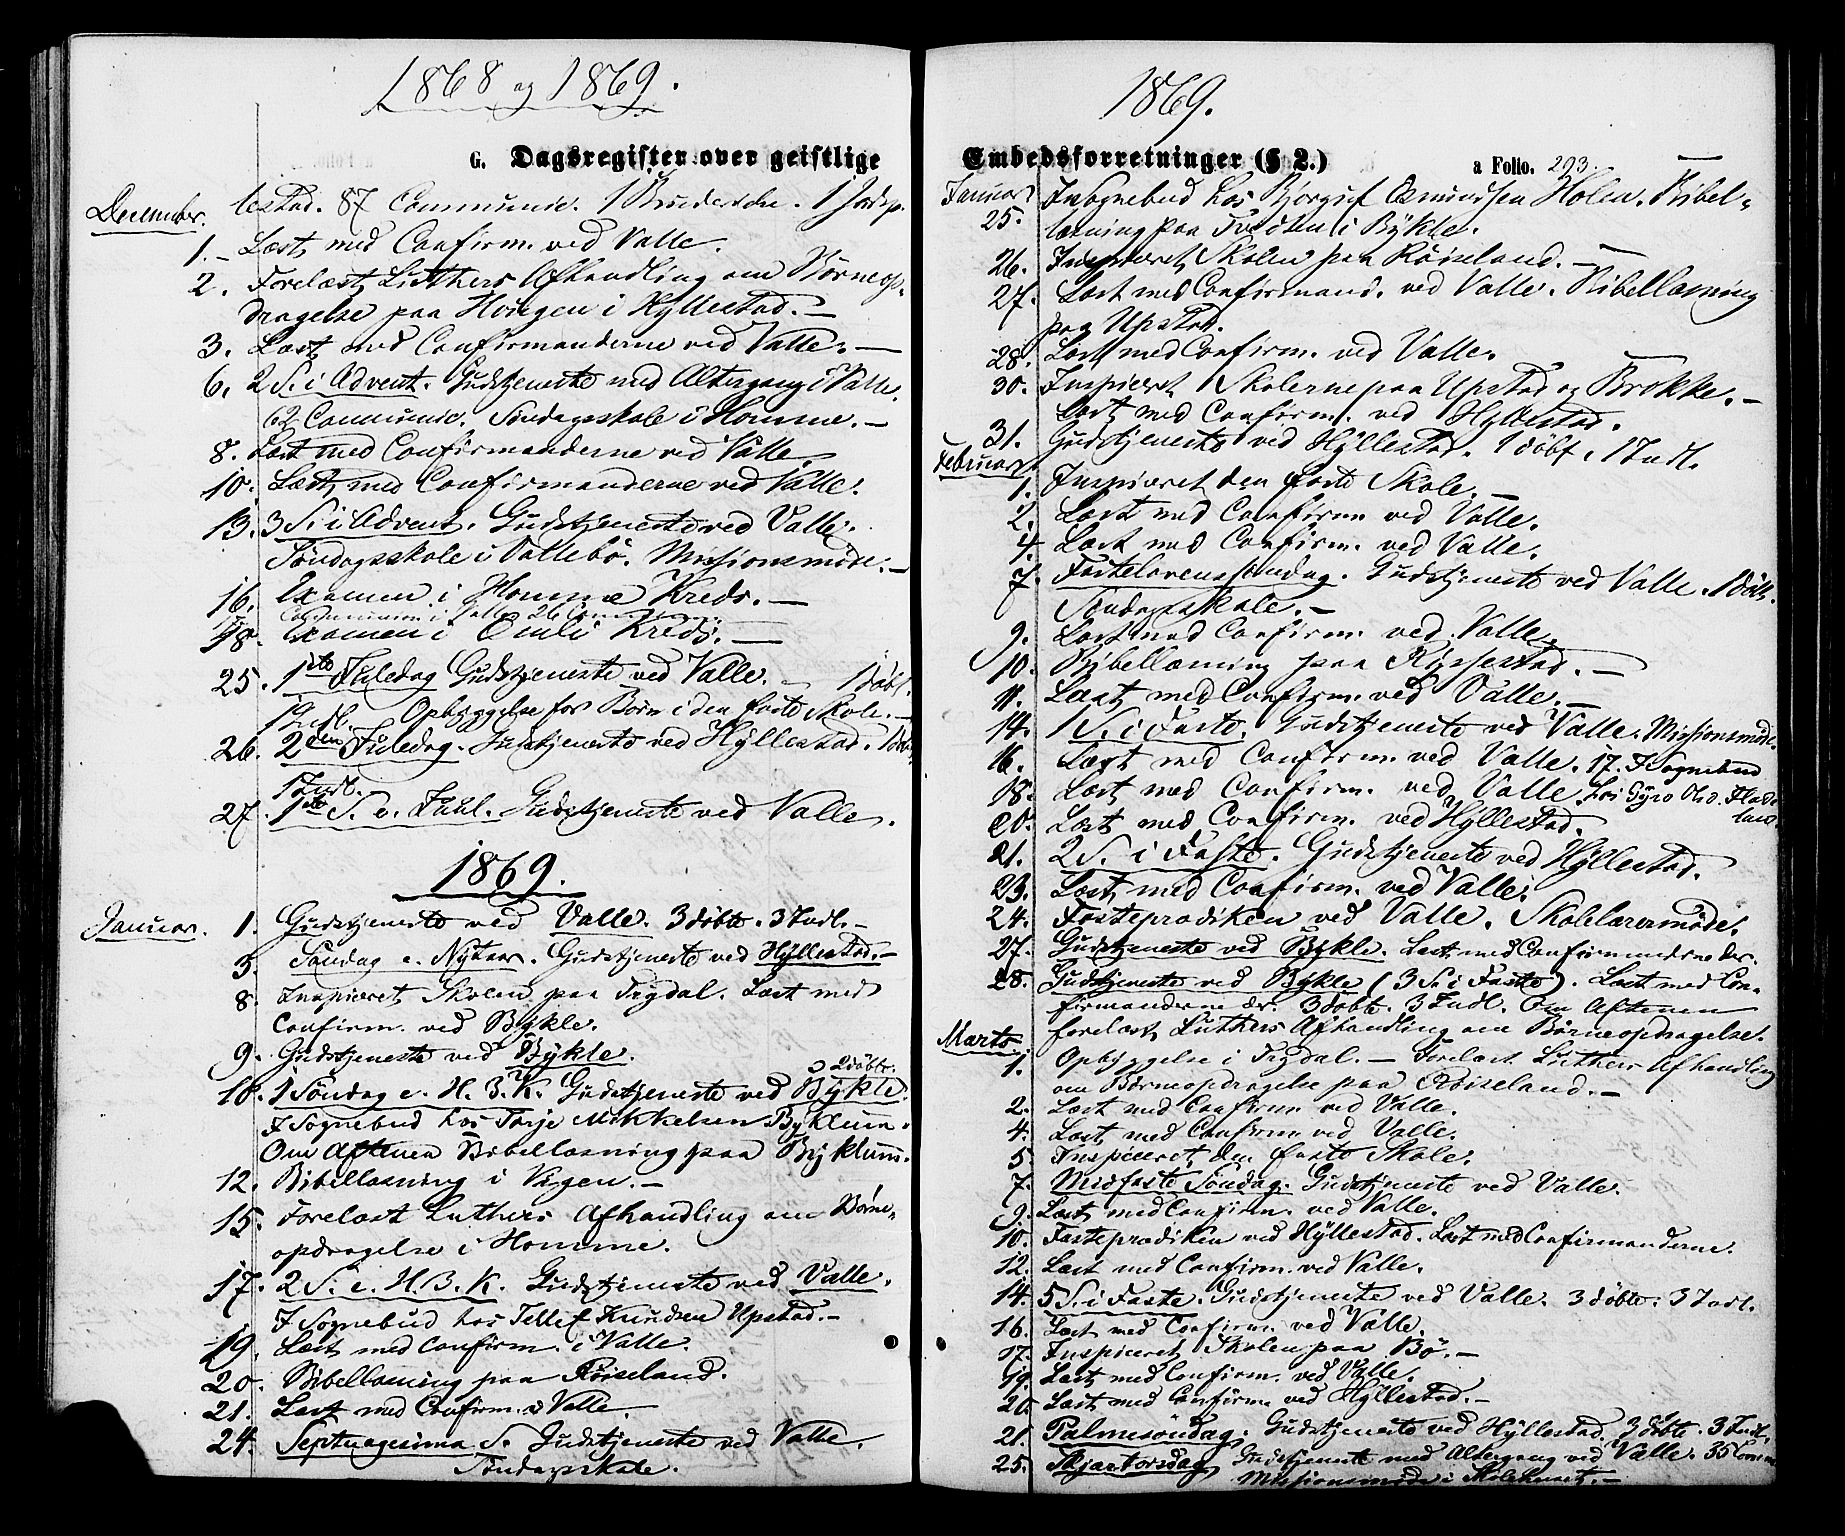 1868 og 1869.
G. Dagsregister over geistlige
December.
lestad. 87 Communic. 1 Brudevielse. 1 Jordsp.
1. Læst med Confirm. ved Valle.
2. Forelæst Luthers Afhandling om Børneop-
dragelse paa Homgen i Hyllestad. —
3. Læst med Confirmanderne ved Valle. —
6. 2 S. i Advent. Gudstjeneste med Altergang i Valle.
62 Communic. Söndagsskole i Homme. —
8. Læst med Confirmanderne ved Valle.
10. Læst med Confirmanderne ved Valle.
13. 3 S. i Advent. Gudstjeneste ved Valle.
Söndagsskole i Vallebö. Missionsmöde. —
16. Examen i Homme Kreds. —
i Valle 26
18. Examen i Kreds. —
25. 1ste Juledag Gudstjeneste ved Valle. — 1 Döbt.
1 Indl. Opbyggelse for Børn i den faste Skole. —
26. 2den Juledag. Gudstjeneste ved Hyllestad. 1 döbt.
1 Indl.
27. 1ste S. e. Juul. Gudstjeneste ved Valle.
1869.
Januar. 1. Gudstjeneste ved Valle. 3 döbte. 3 Indl. —
3. Söndag e. Nytaar. Gudstjeneste ved Hyllestad. —
8. Inspiceret Skolen paa Trydal. Læst med
Confirm. ved Bykle.
9. Gudstjeneste ved Bykle.
2 döbte.
10. 1 Söndag e. H. 3. K. Gudstjeneste ved Bykle.
I Sognebud hos Torje Mikkelsen Byklum.
Om Aftenen Bibellæsning paa Byklum.
12. Bibellæsning i Vigen. —
15. Forelæst Luthers Afhandling om Börne-
opdragelse i Homme.
17. 2 S. e. H. 3. K. Gudstjeneste ved Valle.
I Sognebud hos Tellef Knudsen Upstad. —
19. Læst med Confirm. i Valle.
20. Bibellæsning paa Röiseland.
21. Læst med Confirm. i Valle.
24. Septuagesima S. Gudstjeneste ved Valle.
Söndagsskole.
1869.
Embedsforretninger (§ 2.)
a Folio. 293.
Januar
25. I Sognebud hos Bjorguf Osmundsen Holen. Bibel-
læsning paa i Bykle.
26. Inspiceret Skolen paa Röiseland. —
27. Læst med Confirmand. ved Valle. Bibellæsning
paa Upstad.
28. Læst med Confirm. ved Valle.
30. Inspiceret Skolerne paa Upstad og Brokke. —
Læst med Confirm. ved Hyllestad.
31. Gudstjeneste ved Hyllestad. 1 döbt. 1 Indl.
Februar
1. Inspiceret den faste Skole. —
2. Læst med Confirm ved Valle.
4. Læst med Confirm. ved Valle.
7. Fastelavenssöndag. Gudstjeneste ved Valle. 1 Döbt.
Söndagsskole. —
9. Læst med Confirm. ved Valle.
10. Bibellæsning paa Rysestad. —
11. Læst med Confirm. ved Valle. —
14. 1 S. i Faste. Gudstjeneste ved Valle. Missionsmöde.
16. Læst med Confirm. ved Valle. 17. I Sognebud
18. Læst med Confirm. ved Valle. hos Gyro Olsd. Flade-
land.
20. Læst med Confirm. ved Hyllestad.
21. 2 S. i Faste. Gudstjeneste ved Hyllestad.
23. Læst med Confirm. ved Valle.
24. Fasteprædiken ved Valle. Skolelærermöde.
27. Gudstjeneste ved Bykle. Læst med Confirmanderne der.
28. Gudstjeneste ved Bykle (3 S. i Faste). Læst med Con-
firmanderne der. 3 döbte. 3 Indl. Om Aftenen
forelæst Luthers Afhandling om Börneopdragelse.
Marts
1. Opbyggelse i Trydal. — Forelæst Luthers Afhandling
om Börneopdragelse paa Röiseland. —
2. Læst med Confirm ved Valle.
4. Læst med Confirm ved Valle.
5. Inspiceret den faste Skole.
7. Midfaste Söndag. Gudstjeneste ved Valle.
9. Læst med Confirm. ved Valle.
10. Fasteprædiken ved Hyllestad. Læst med Confirmanderne.
12. Læst med Confirm. ved Valle.
14. 5 S. i Faste. Gudstjeneste ved Valle. 3 döbte. 3 Indl.
16. Læst med Confirm. ved Valle.
17. Inspiceret Skolen paa Bö. —
19. Læst med Confirm. ved Valle.
20. Læst med Confirm. ved Hyllestad. —
21. Palmesöndag. Gudstjeneste ved Hyllestad. 3 döbte. 3 Indl.
25. Skjærtorsdag. Gudstjeneste med Altergang ved Valle. 35 Comm
Missionsmöde i Skolehuset. —